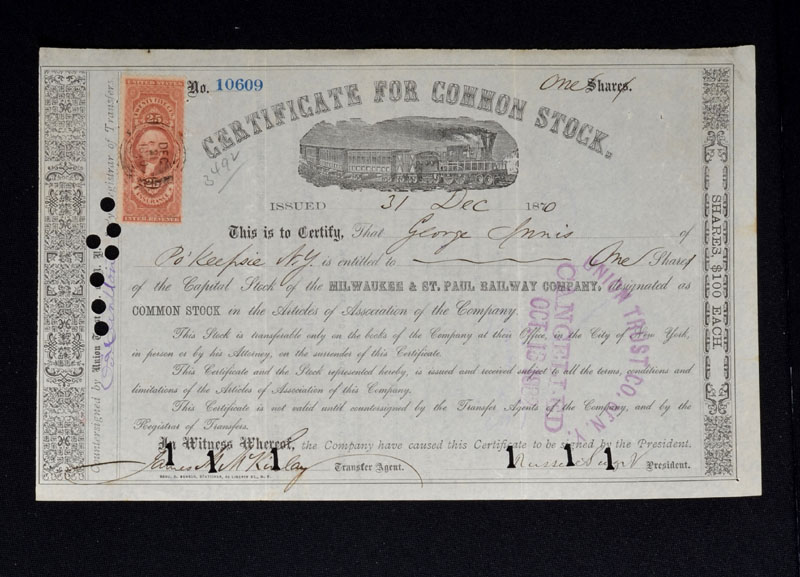 No. 10609
One Shares.
CERTIFICATE FOR COMMON STOCK.
25
UNITED STATES
INTER. REVENUE
DEC
3492
ISSUED 31 Dec 1870
This is to Certify, That George Innis of
Po'Keepsie N.Y. is entitled to One Shares
of the Capital Stock of the MILWAUKEE & ST. PAUL RAILWAY COMPANY, designated as
COMMON STOCK in the Articles of Association of the Company.
This Stock is transferable only on the books of the Company at their Office, in the City of New York,
in person or by his Attorney, on the surrender of this Certificate.
This Certificate and the Stock represented hereby, is issued and received subject to all the terms, conditions and
limitations of the Articles of Association of this Company.
This Certificate is not valid until countersigned by the Transfer Agents of the Company, and by the
Registrar of Transfers.
In Witness Whereof, the Company have caused this Certificate to be signed by the President.
James M. McKinlay Transfer Agent.
Russell Sage V President.
Countersigned by Union Trust
Registrar of Transfers
SHARES $100 EACH
UNION TRUST CO. OF N.Y.
CANCELLED
OCT 16